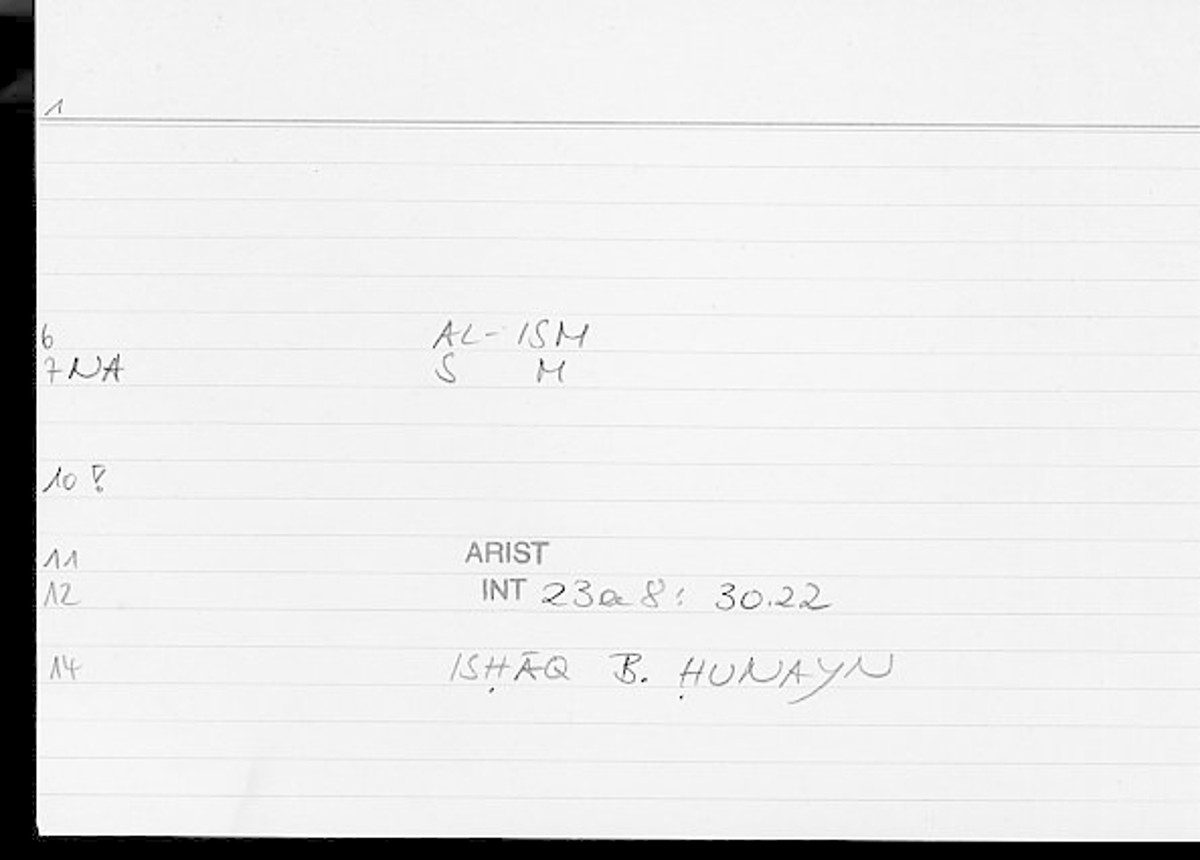 1
6 AL-ISM
7 NA S M
10 !
11 ARIST
12 INT 23a8: 30.22
14 ISḤĀQ B. ḤUNAYN